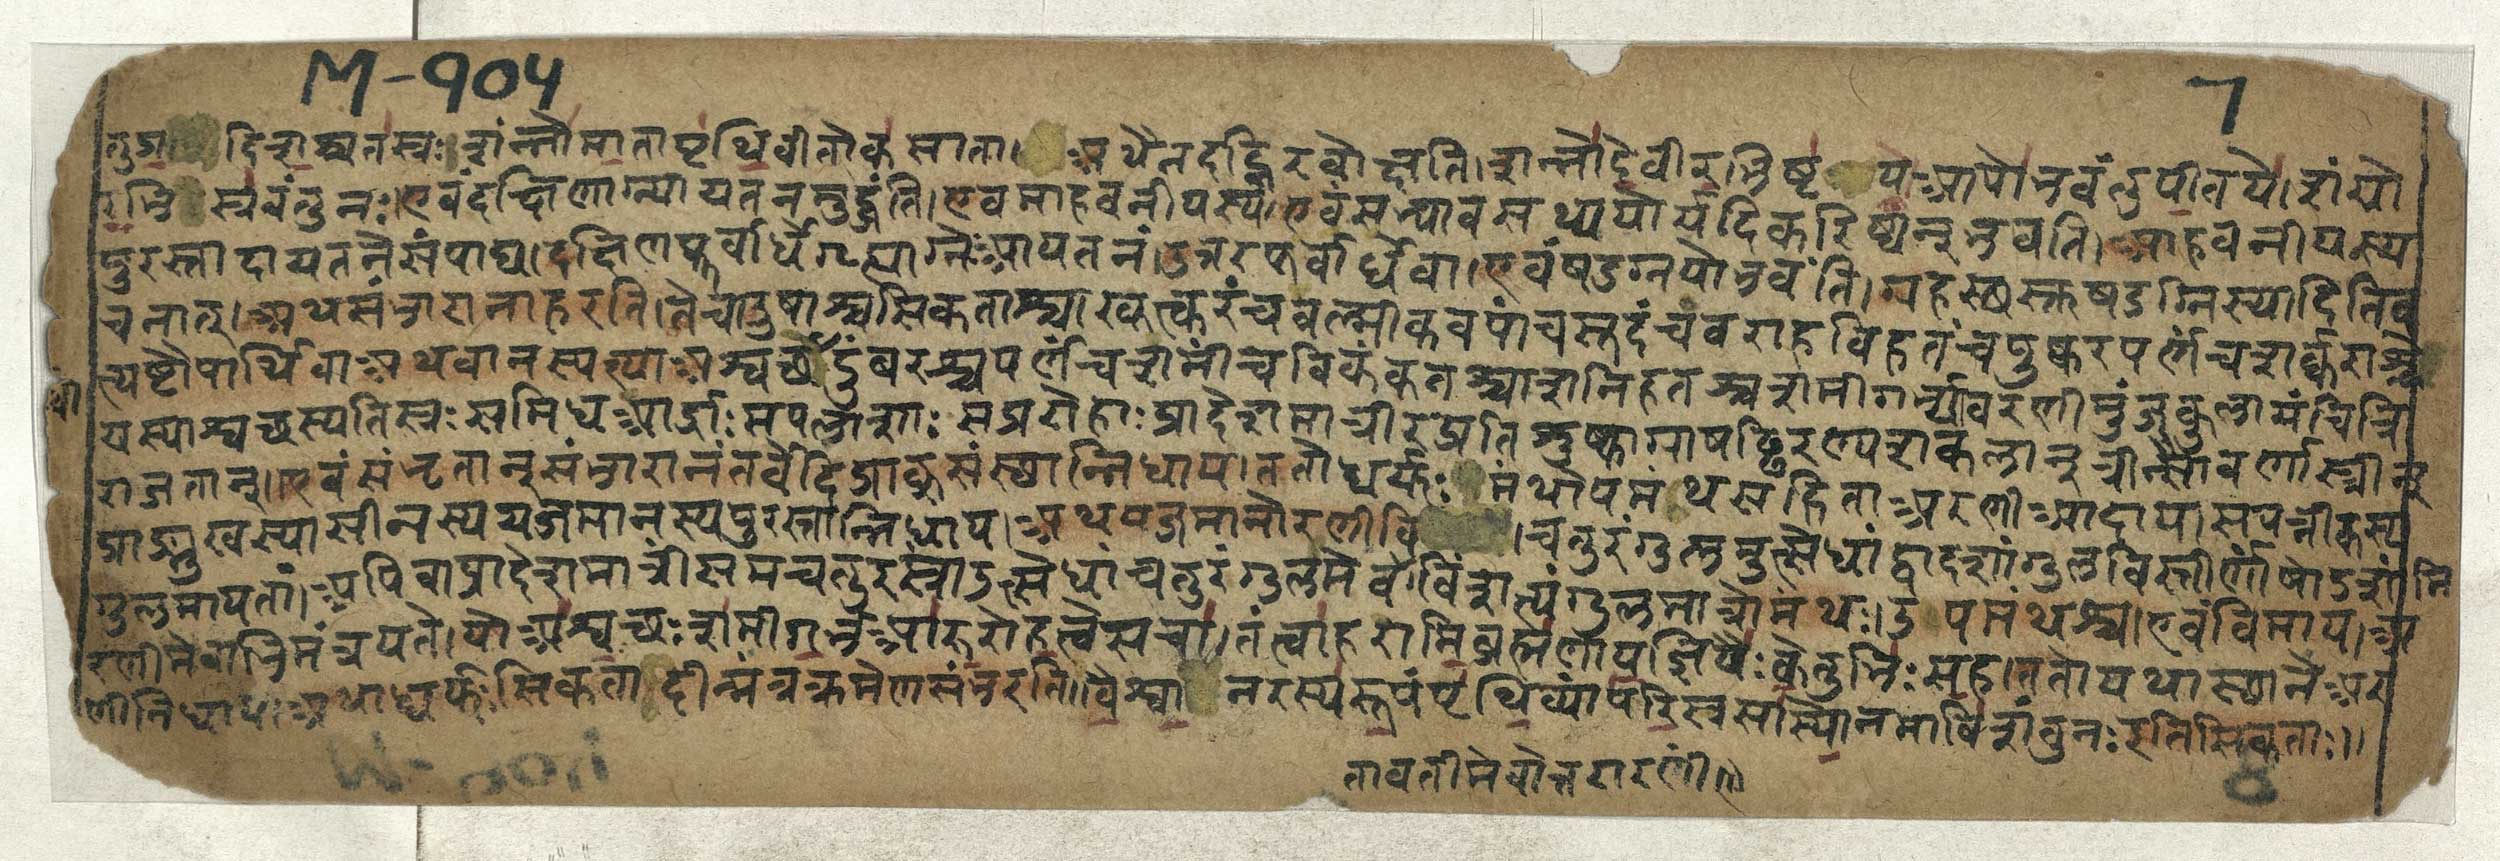 M-१०५
7
दिवाश्च्यतस्वः शंन्नोमातापृथिवीतोकसाता। अथैनदद्भिरवोक्षति। शन्नोदेवीरभिष्टये आपोभवंतुपीतये। शंयो
रभिस्रवंतुनः॥ एवंदक्षिणाग्न्यायतनमुद्धंति। एवमाहवनीयस्य। एवंसभ्यावसथ्ययोर्यदिकरिष्यन्भवति। आहवनीयस्य
पुरस्तादायतनेसंपाद्य। दक्षिणपूर्वार्धेगृह्याग्नेः आयतनं। उत्तरपूर्वार्धेवा। एवंषडग्नयोभवंति। गृहस्थस्तुषडग्निस्यादितिव
चनात्। अथसंभारानाहरति। तेचोषाश्चसिकताश्चाखूत्करंचवल्मीकवपांचसूदंचवराहविहतंचपुष्करपर्णंचशर्कराश्चे
त्यष्टौपार्थिवाः अथवानस्पत्याः अश्वत्थ उदुंबरश्चपर्णंचशमींचविकंकतश्चाशनिहतश्चशमीगर्भ्यावरणीमुंजकुलायंचित्रि
यस्याश्वत्थस्यतिस्रः समिध आर्द्राः सपलाशाः सप्ररोहाः प्रादेशमात्रीः शुष्कागोषष्ठिरण्यशकलान्त्रीन्सौवर्णांस्त्रीन्
राजतान्॥ एवंसंभृतान्संभारानंतर्वेदिप्राक्संस्थान्निधाय। ततोध्वर्युः मंथोपमंथसहिता अरणी आदाय। सपत्नीकस्य
प्राङ्मुखस्यासीनस्ययजमानस्यपुरस्तान्निधाय। अथयजमानोरणीवि । चतुरंगुलमुत्सेधांद्वादशांगुलविस्तीर्णांषोडशां
गुलमायतां। अपिवाप्रादेशमात्रींसमचतुरस्राउत्सेधांचतुरंगुलमेवविंशत्यंगुलमात्रोमंथः। उपमंथश्च। एवंविमाय। अ
रणीमेवाभिमंत्रयते। यो अश्वत्थः शमीगर्भ आरुरोहत्वेसचा। तंत्वाहरामिब्रह्मणायज्ञियैः केतुभिः सह। ततोयथास्थाने अर
णीनिधाय। अथाध्वर्युः सिकतादीन्मंत्रक्रमेणसंभरति॥ वैश्वानरस्यरूपंपृथिव्यांपरिस्रसास्योनमाविशंतुनः इतिसिकताः॥
तावतीमेवोत्तरारणीं॥
8